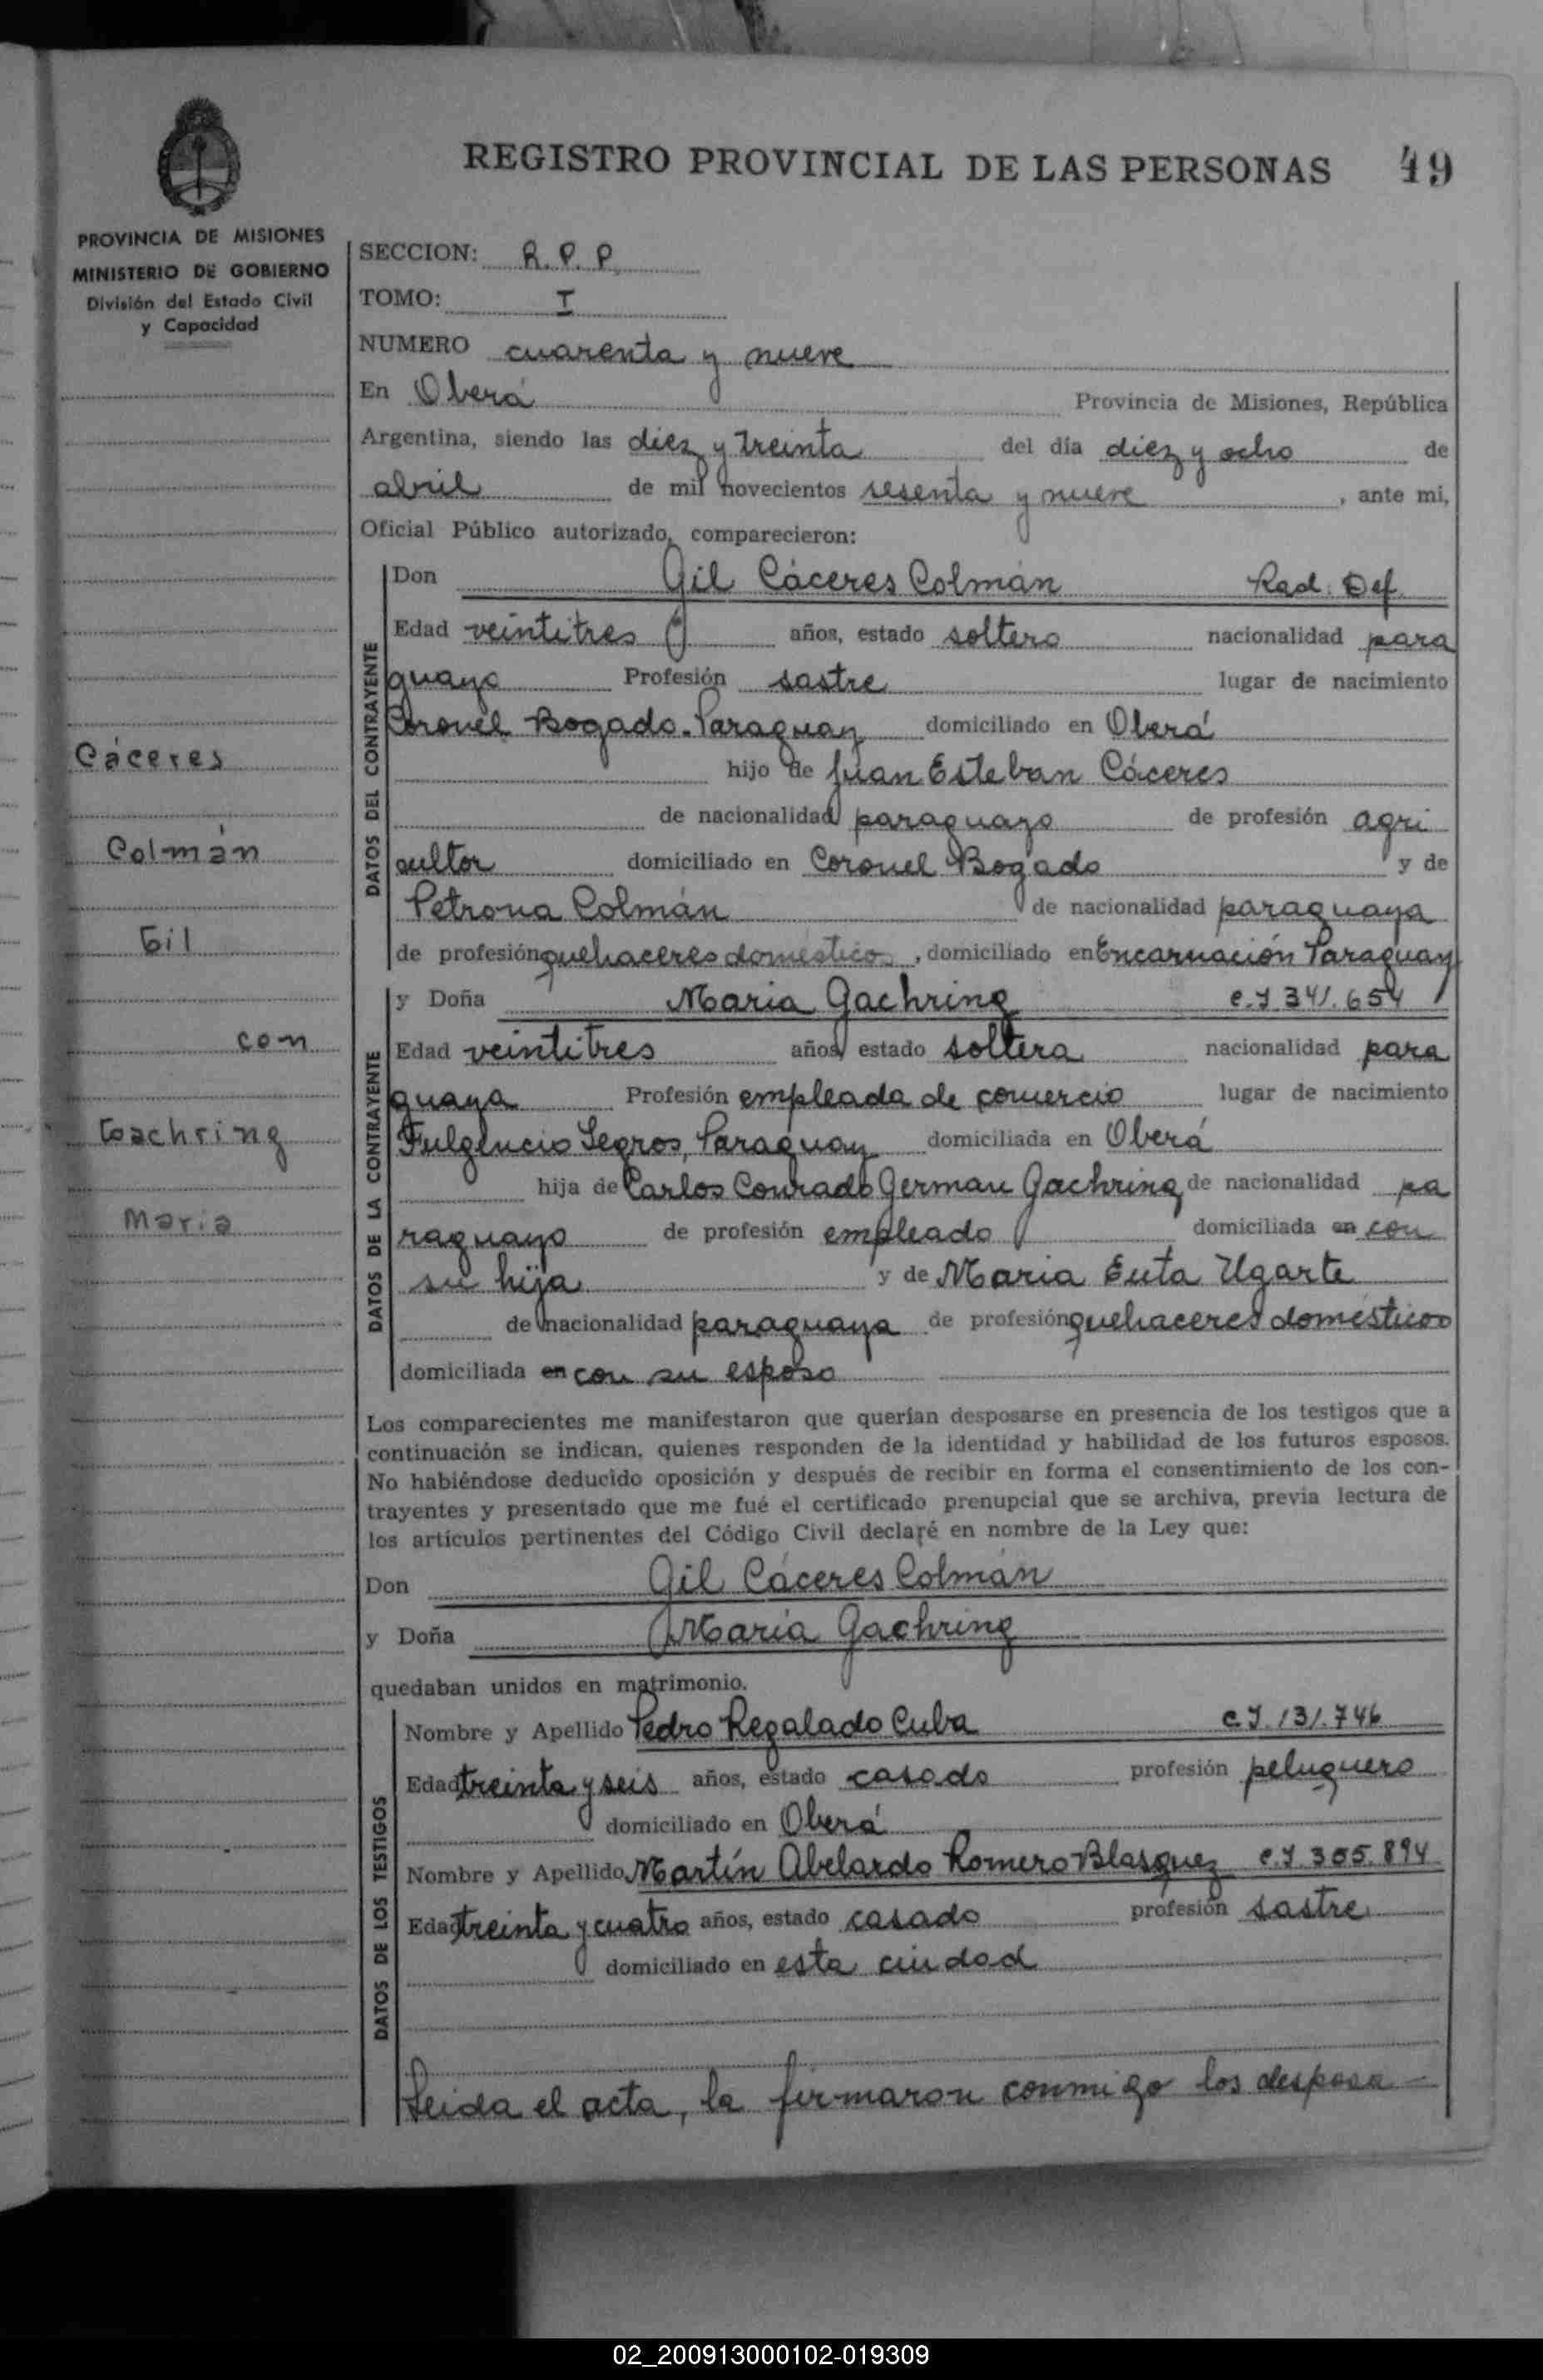 REGISTRO PROVINCIAL DE LAS PERSONAS 49
PROVINCIA DE MISIONES
MINISTERIO DE GOBIERNO
División del Estado Civil
y Capacidad
Cáceres
Colmán
Gil
con
Gachring
Maria
SECCION: R. P. P.
TOMO: I
NUMERO cuarenta y nueve
En Oberá Provincia de Misiones, República
Argentina, siendo las diez y treinta del día diez y ocho de
abril de mil novecientos sesenta y nueve, ante mi,
Oficial Público autorizado, comparecieron:
DATOS DEL CONTRAYENTE
Don Gil Cáceres Colmán Rad. Def.
Edad veintitres años, estado soltero nacionalidad para
guayo Profesión sastre lugar de nacimiento
Coronel Bogado. Paraguay domiciliado en Oberá
hijo de Juan Esteban Cáceres
de nacionalidad paraguayo de profesión agri
cultor domiciliado en Coronel Bogado y de
Petrona Colmán de nacionalidad paraguaya
de profesión quehaceres domésticos, domiciliado en Encarnación Paraguay
DATOS DE LA CONTRAYENTE
y Doña Maria Gachring C.I. 341.654
Edad veintitres años, estado soltera nacionalidad para
guaya Profesión empleada de comercio lugar de nacimiento
Fulgencio Yegros, Paraguay domiciliada en Oberá
hija de Carlos Conrado German Gachring de nacionalidad pa
raguayo de profesión empleado domiciliada en con
su hija y de Maria Euta Ugarte
de nacionalidad paraguaya de profesión quehaceres domésticos
domiciliada en con su esposo
Los comparecientes me manifestaron que querían desposarse en presencia de los testigos que a
continuación se indican, quienes responden de la identidad y habilidad de los futuros esposos.
No habiéndose deducido oposición y después de recibir en forma el consentimiento de los con-
trayentes y presentado que me fué el certificado prenupcial que se archiva, previa lectura de
los artículos pertinentes del Código Civil declaré en nombre de la Ley que:
Don Gil Cáceres Colmán
y Doña Maria Gachring
quedaban unidos en matrimonio.
DATOS DE LOS TESTIGOS
Nombre y Apellido Pedro Regalado Cuba C.I. 131.746
Edad treinta y seis años, estado casado profesión peluquero
domiciliado en Oberá
Nombre y Apellido Martín Abelardo Romero Blasquez C.I. 305.894
Edad treinta y cuatro años, estado casado profesión sastre
domiciliado en esta ciudad
Leida el acta, la firmaron conmigo los desposa-
02_200913000102-019309